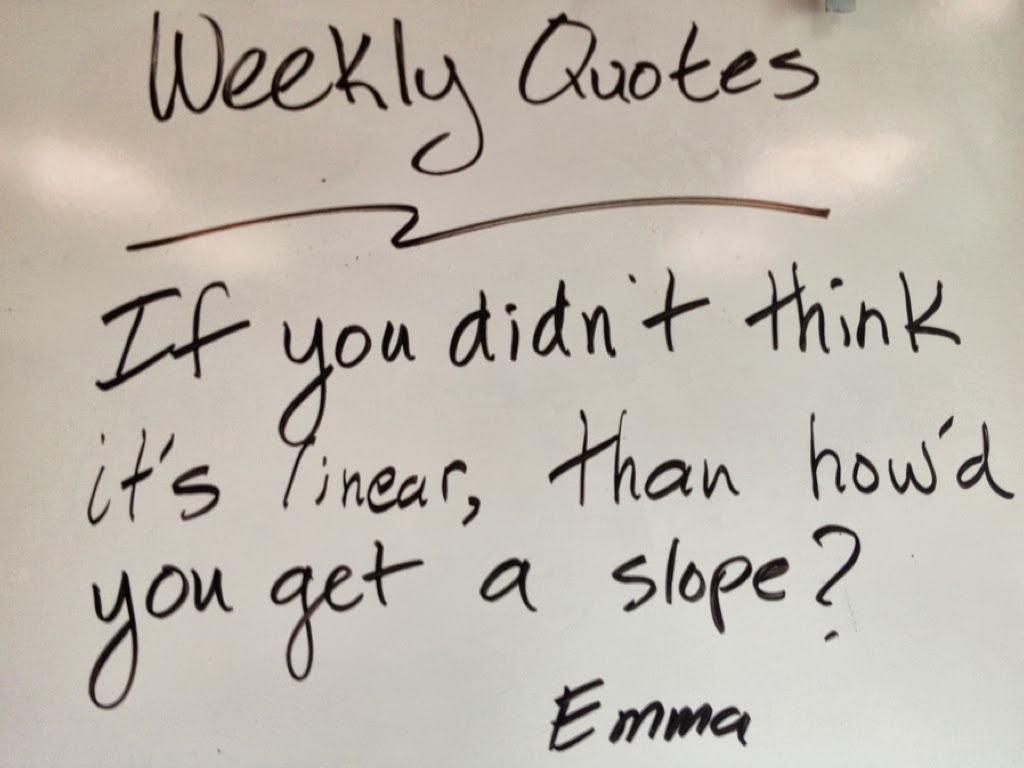 Weekly Quotes
If you didn't think
it's linear, than how'd
you get a slope?
Emma